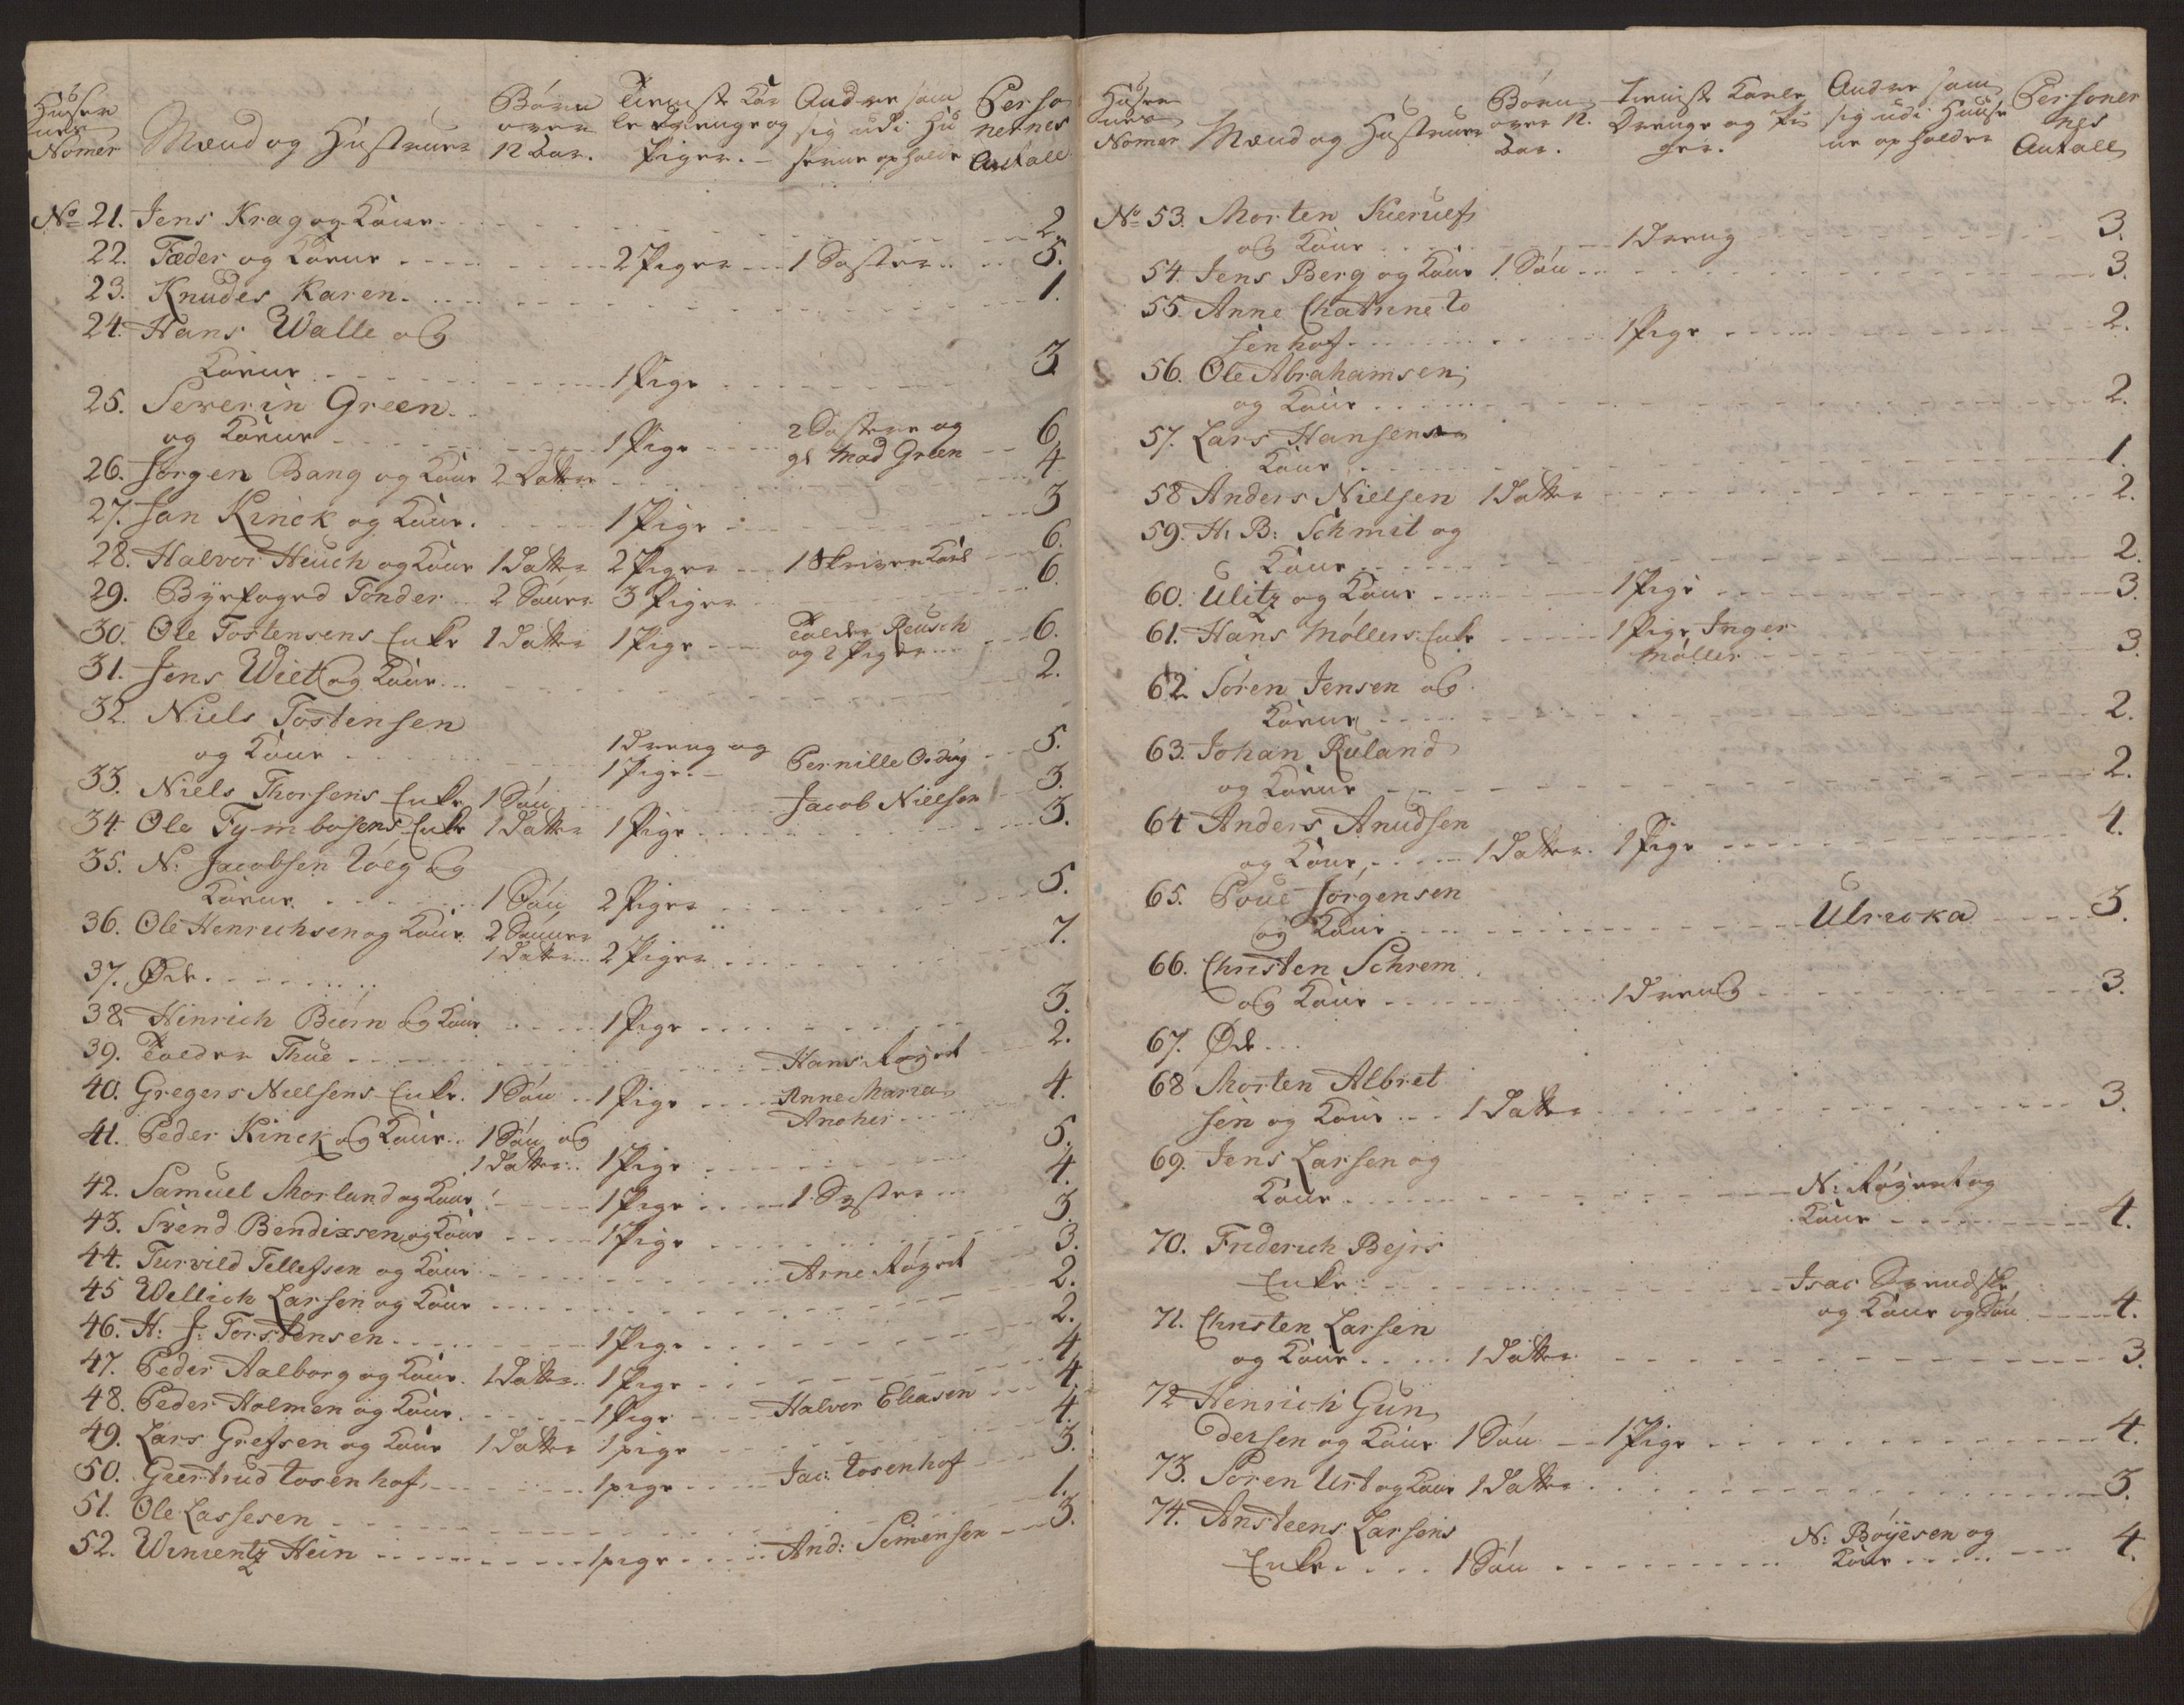 Husernes Nomer | Mænd og Hustruer | Børn over 12 Aar. | Tieniste Karle Drenge og Piger. | Andre som sig udi Huserne opholde | Personernes Antall
No 21. Jens Krag og Kone 2.
22. Fæder og Kone 2 Piger 1 Søster 5.
23. Knudes Karen. 1.
24. Hans Walle og
Kone 1 Pige 3
25. Severin Green
og Kone 1 Pige 2 Søstre og gl Mad Green 6
26. Jørgen Bang og Kone 2 Døttre 4
27. Jan Kinck og Kone. 1 Pige 3
28. Halvor Heuch og Kone 1 Datter 2 Piger 1 Skriver Karl 6.
29. Byefoged Tønder 2 Sønner 3 Piger 6.
30. Ole Tostensens Enke 1 Datter 1 Pige Tolder Reusch og 2 Piger 6.
31. Jens Wiet og Kone 2.
32. Niels Tostensen
og Kone 1 Dreng og 1 Pige. Pernille Ording 5.
33. Niels Thorsens Enke 1 Søn Jacob Nielsen 3.
34. Ole Tymbosens Enke 1 Datter 1 Pige 3.
35. N: Jacobsen Løeg og
Kone 1 Søn 2 Piger 5.
36. Ole Henrichsen og Kone 2 Sønner 1 Datter 2 Piger 7.
37. Øde
38. Hinrich Biørn og Kone 1 Pige 3.
39. Tolder Thue Hans Røyert 2.
40. Gregers Nielsens Enke. 1 Søn 1 Pige Anne Maria Ancher 4.
41. Peder Kinck og Kone 1 Søn og 1 Datter 1 Pige 5.
42. Samuel Morland og Kone 1 Pige 1 Syster 4.
43. Svend Bendixsen og Kone 1 Pige 3.
44. Turvild Tellefsen og Kone Arne Røyert 3.
45 Wellich Larsen og Kone 2.
46. H: J: Torstensen 1 Pige 2.
47. Peder Aalborg og Kone. 1 Datter 1 Pige 4
48. Peder Holmen og Kone. 1 Pige Halvor Eleasen 4.
49. Lars Grefsen og Kone 1 Datter 1 pige 4.
50. Geertrud Tosenhof 1 pige Jac: Tosenhof 3.
51. Ole Lassesen 1.
52. Wincentz Hein 1 pige And: Simensen 3.
Husernes Nomer | Mænd og Hustruer | Børn over 12 Aar. | Tieniste Karle Drenge og Piger. | Andre som sig udi Husene opholder | Personernes Antall
No 53. Morten Kierulf
og Kone 1 Dreng 3.
54. Jens Berg og Kone 1 Søn 3.
55. Anne Chatrine To
senhof 1 Pige 2.
56. Ole Abrahamsen
og Kone 2.
57. Lars Hansen og
Kone 1.
58 Anders Nielsen 1 Datter 2.
59. H: B: Schmit og
Kone 2.
60. Ulitz og Kone 1 Pige 3.
61. Hans Møllers Enke 1 Pige Inger Møller 3.
62. Søren Jensen og
Kone 2.
63. Johan Ruland
og Kone 2.
64 Anders Anudsen
og Kone 1 Datter 1 Pige 4.
65. Poul Jørgensen
og Kone Ulreoka 3.
66. Christen Schrem
og Kone 1 Dreng 3.
67. Øde
68 Morten Albret
sen og Kone 1 Datter 3.
69. Jens Larsen og
Kone N: Røyert og Kone 4.
70. Friderich Bejrs
Enke Isac Svendsen og Kone og Søn 4.
71. Christen Larsen
og Kone 1 Datter 3.
72 Henrich Gun
dersen og Kone 1 Søn 1 Pige 4.
73. Søren Urt og Kone 1 Datter 3.
74. Ansteens Larsens
Enke 1 Søn N: Bøyesen og Kone 4.